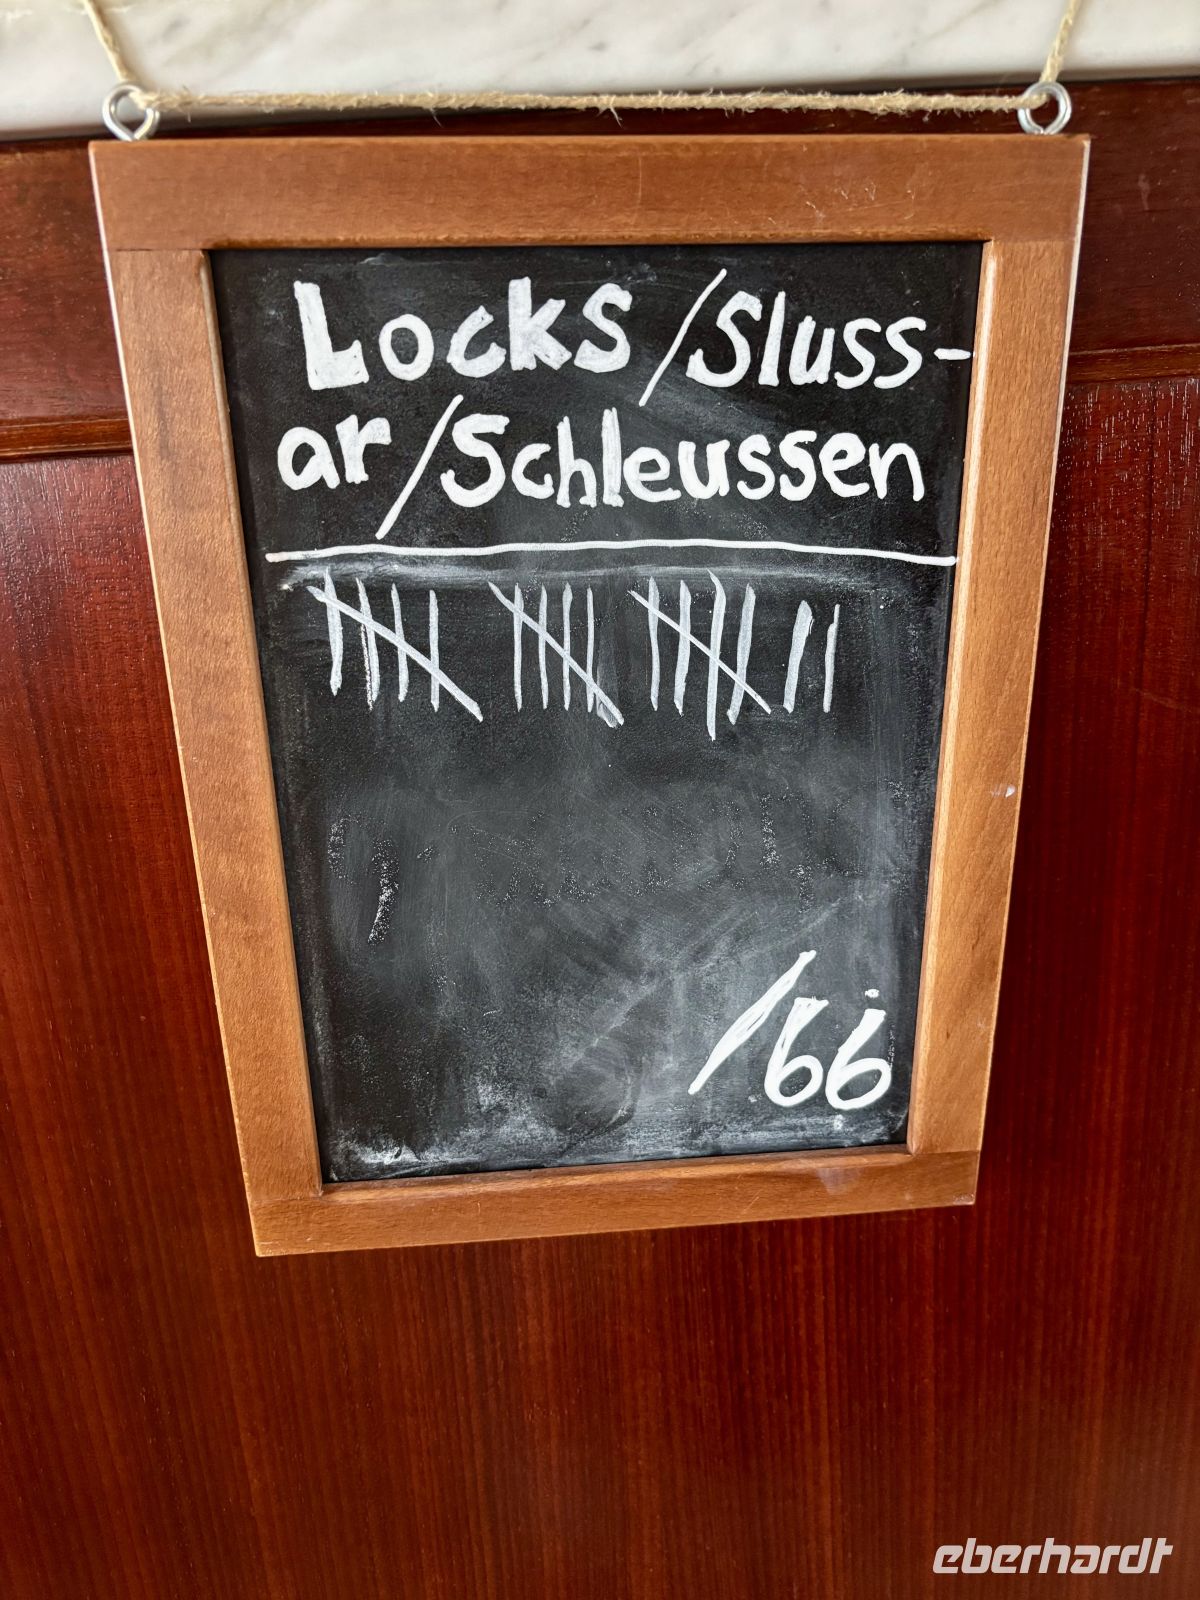 Locks/Sluss-
ar/Schleussen
/66
eberhardt